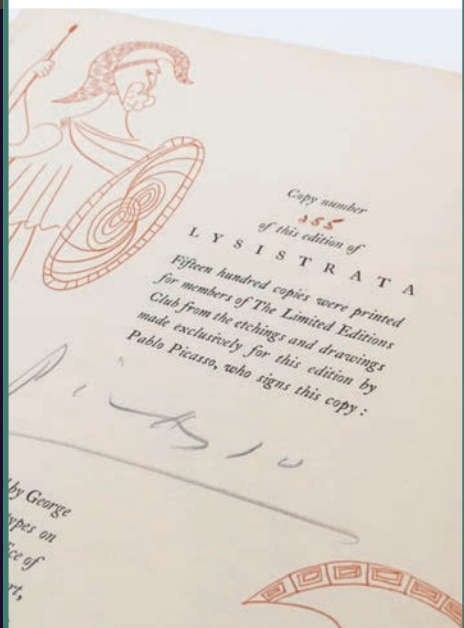 Copy number
255
of this edition of
LYSISTRATA
Fifteen hundred copies were printed
for members of The Limited Editions
Club from the etchings and drawings
made exclusively for this edition by
Pablo Picasso, who signs this copy :
Picasso
by George
types on
of